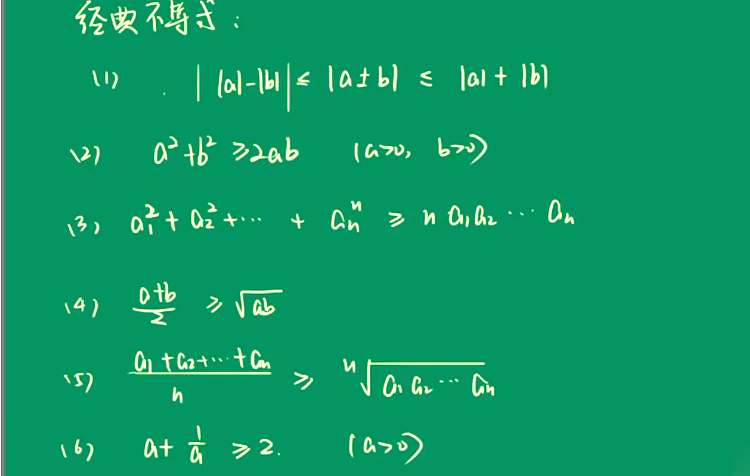 经典不等式：
(1) | |a|-|b| | ≤ |a±b| ≤ |a|+|b|
(2) a²+b² ≥2ab (a>0, b>0)
(3) a₁²+a₂²+⋯ + aₙⁿ ≥ n a₁a₂⋯aₙ
(4) (a+b)/2 ≥ √(ab)
(5) (a₁+a₂+⋯+aₙ)/n ≥ ⁿ√(a₁a₂⋯aₙ)
(6) a+1/a ≥2. (a>0)